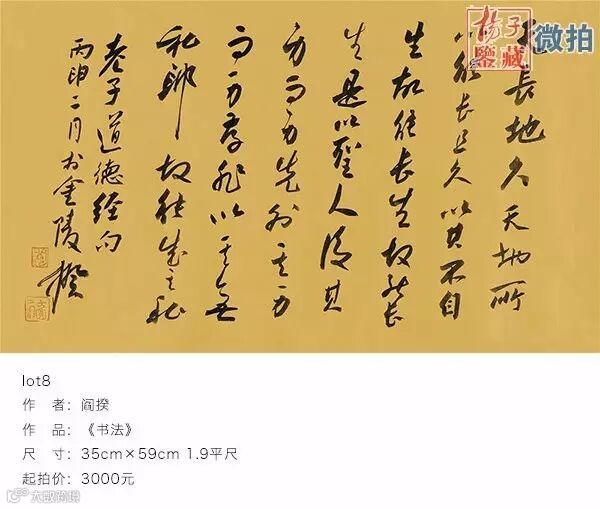 揚子
鑒藏
微拍
天長地久天地所
以能长且久以其不自
生故能长生故能长
生是以聖人後其
身而身先外其身
而身存非以其無
私耶故能成其私
老子道德經句
丙申二月於金陵揆
lot8
作 者：阎揆
作 品：《书法》
尺 寸：35cm×59cm 1.9平尺
起拍价：3000元